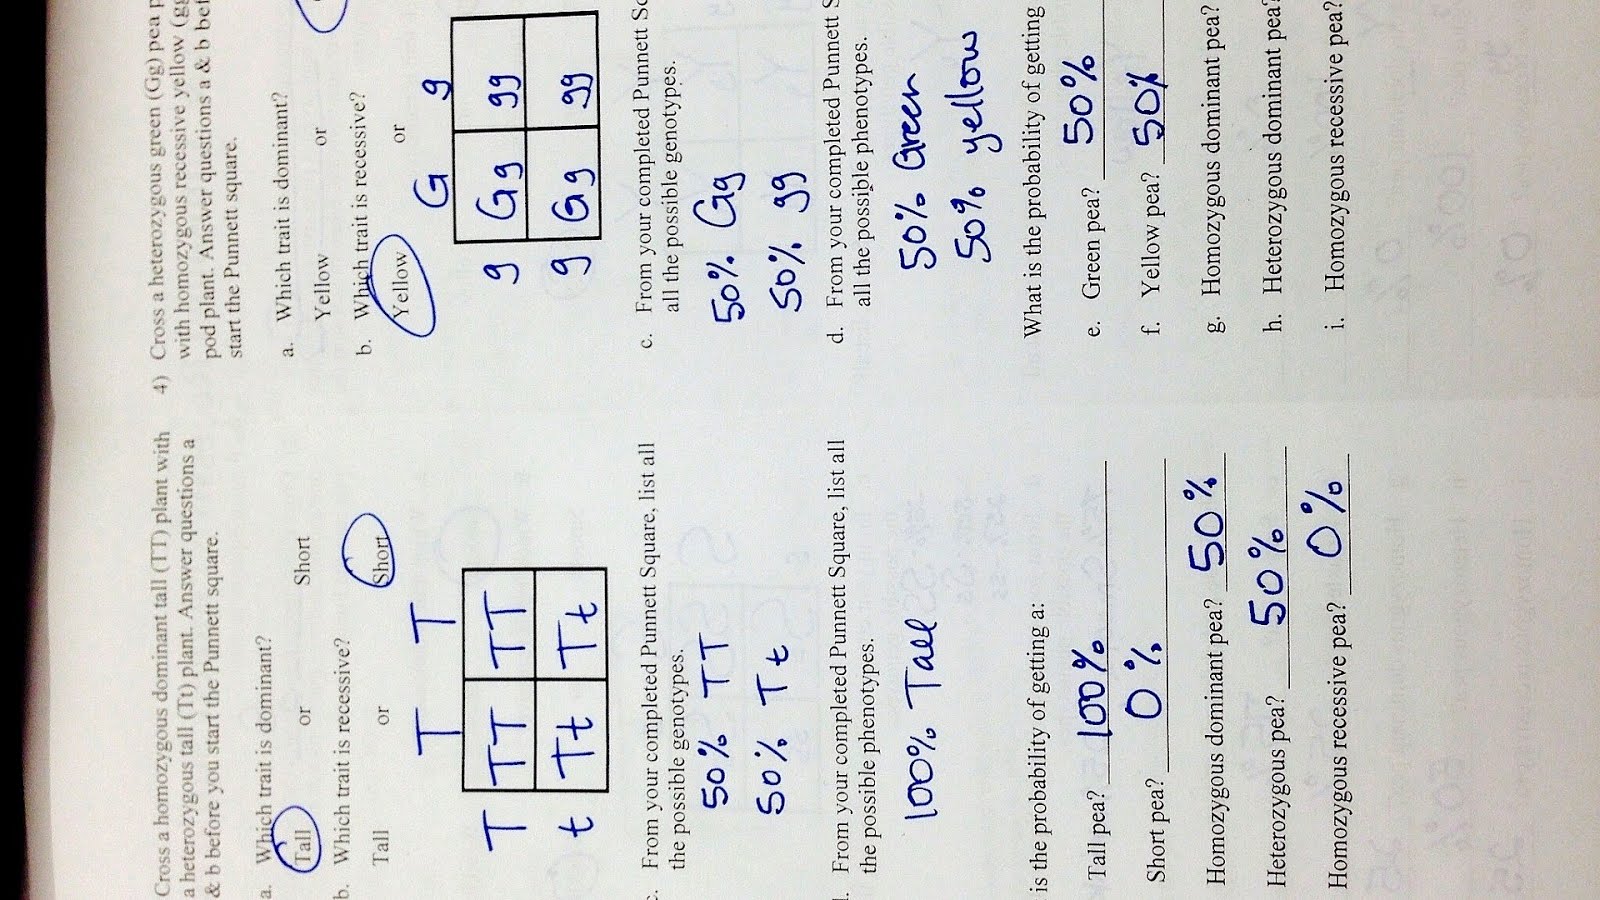 Cross a homozygous dominant tall (TT) plant with
a heterozygous tall (Tt) plant. Answer questions a
& b before you start the Punnett square.
a. Which trait is dominant?
Tall or Short
b. Which trait is recessive?
Tall or Short
T T
T TT TT
t Tt Tt
c. From your completed Punnett Square, list all
the possible genotypes.
50% TT
50% Tt
d. From your completed Punnett Square, list all
the possible phenotypes.
100% Tall
is the probability of getting a:
Tall pea? 100%
Short pea? 0%
Homozygous dominant pea? 50%
Heterozygous pea? 50%
Homozygous recessive pea? 0%
4) Cross a heterozygous green (Gg) pea
with homozygous recessive yellow (gg
pod plant. Answer questions a & b bef
start the Punnett square.
a. Which trait is dominant?
Yellow or
b. Which trait is recessive?
Yellow or
G g
g Gg gg
g Gg gg
c. From your completed Punnett Sc
all the possible genotypes.
50% Gg
50% gg
d. From your completed Punnett S
all the possible phenotypes.
50% Green
50% yellow
What is the probability of getting
e. Green pea? 50%
f. Yellow pea? 50%
g. Homozygous dominant pea?
h. Heterozygous dominant pea?
i. Homozygous recessive pea?